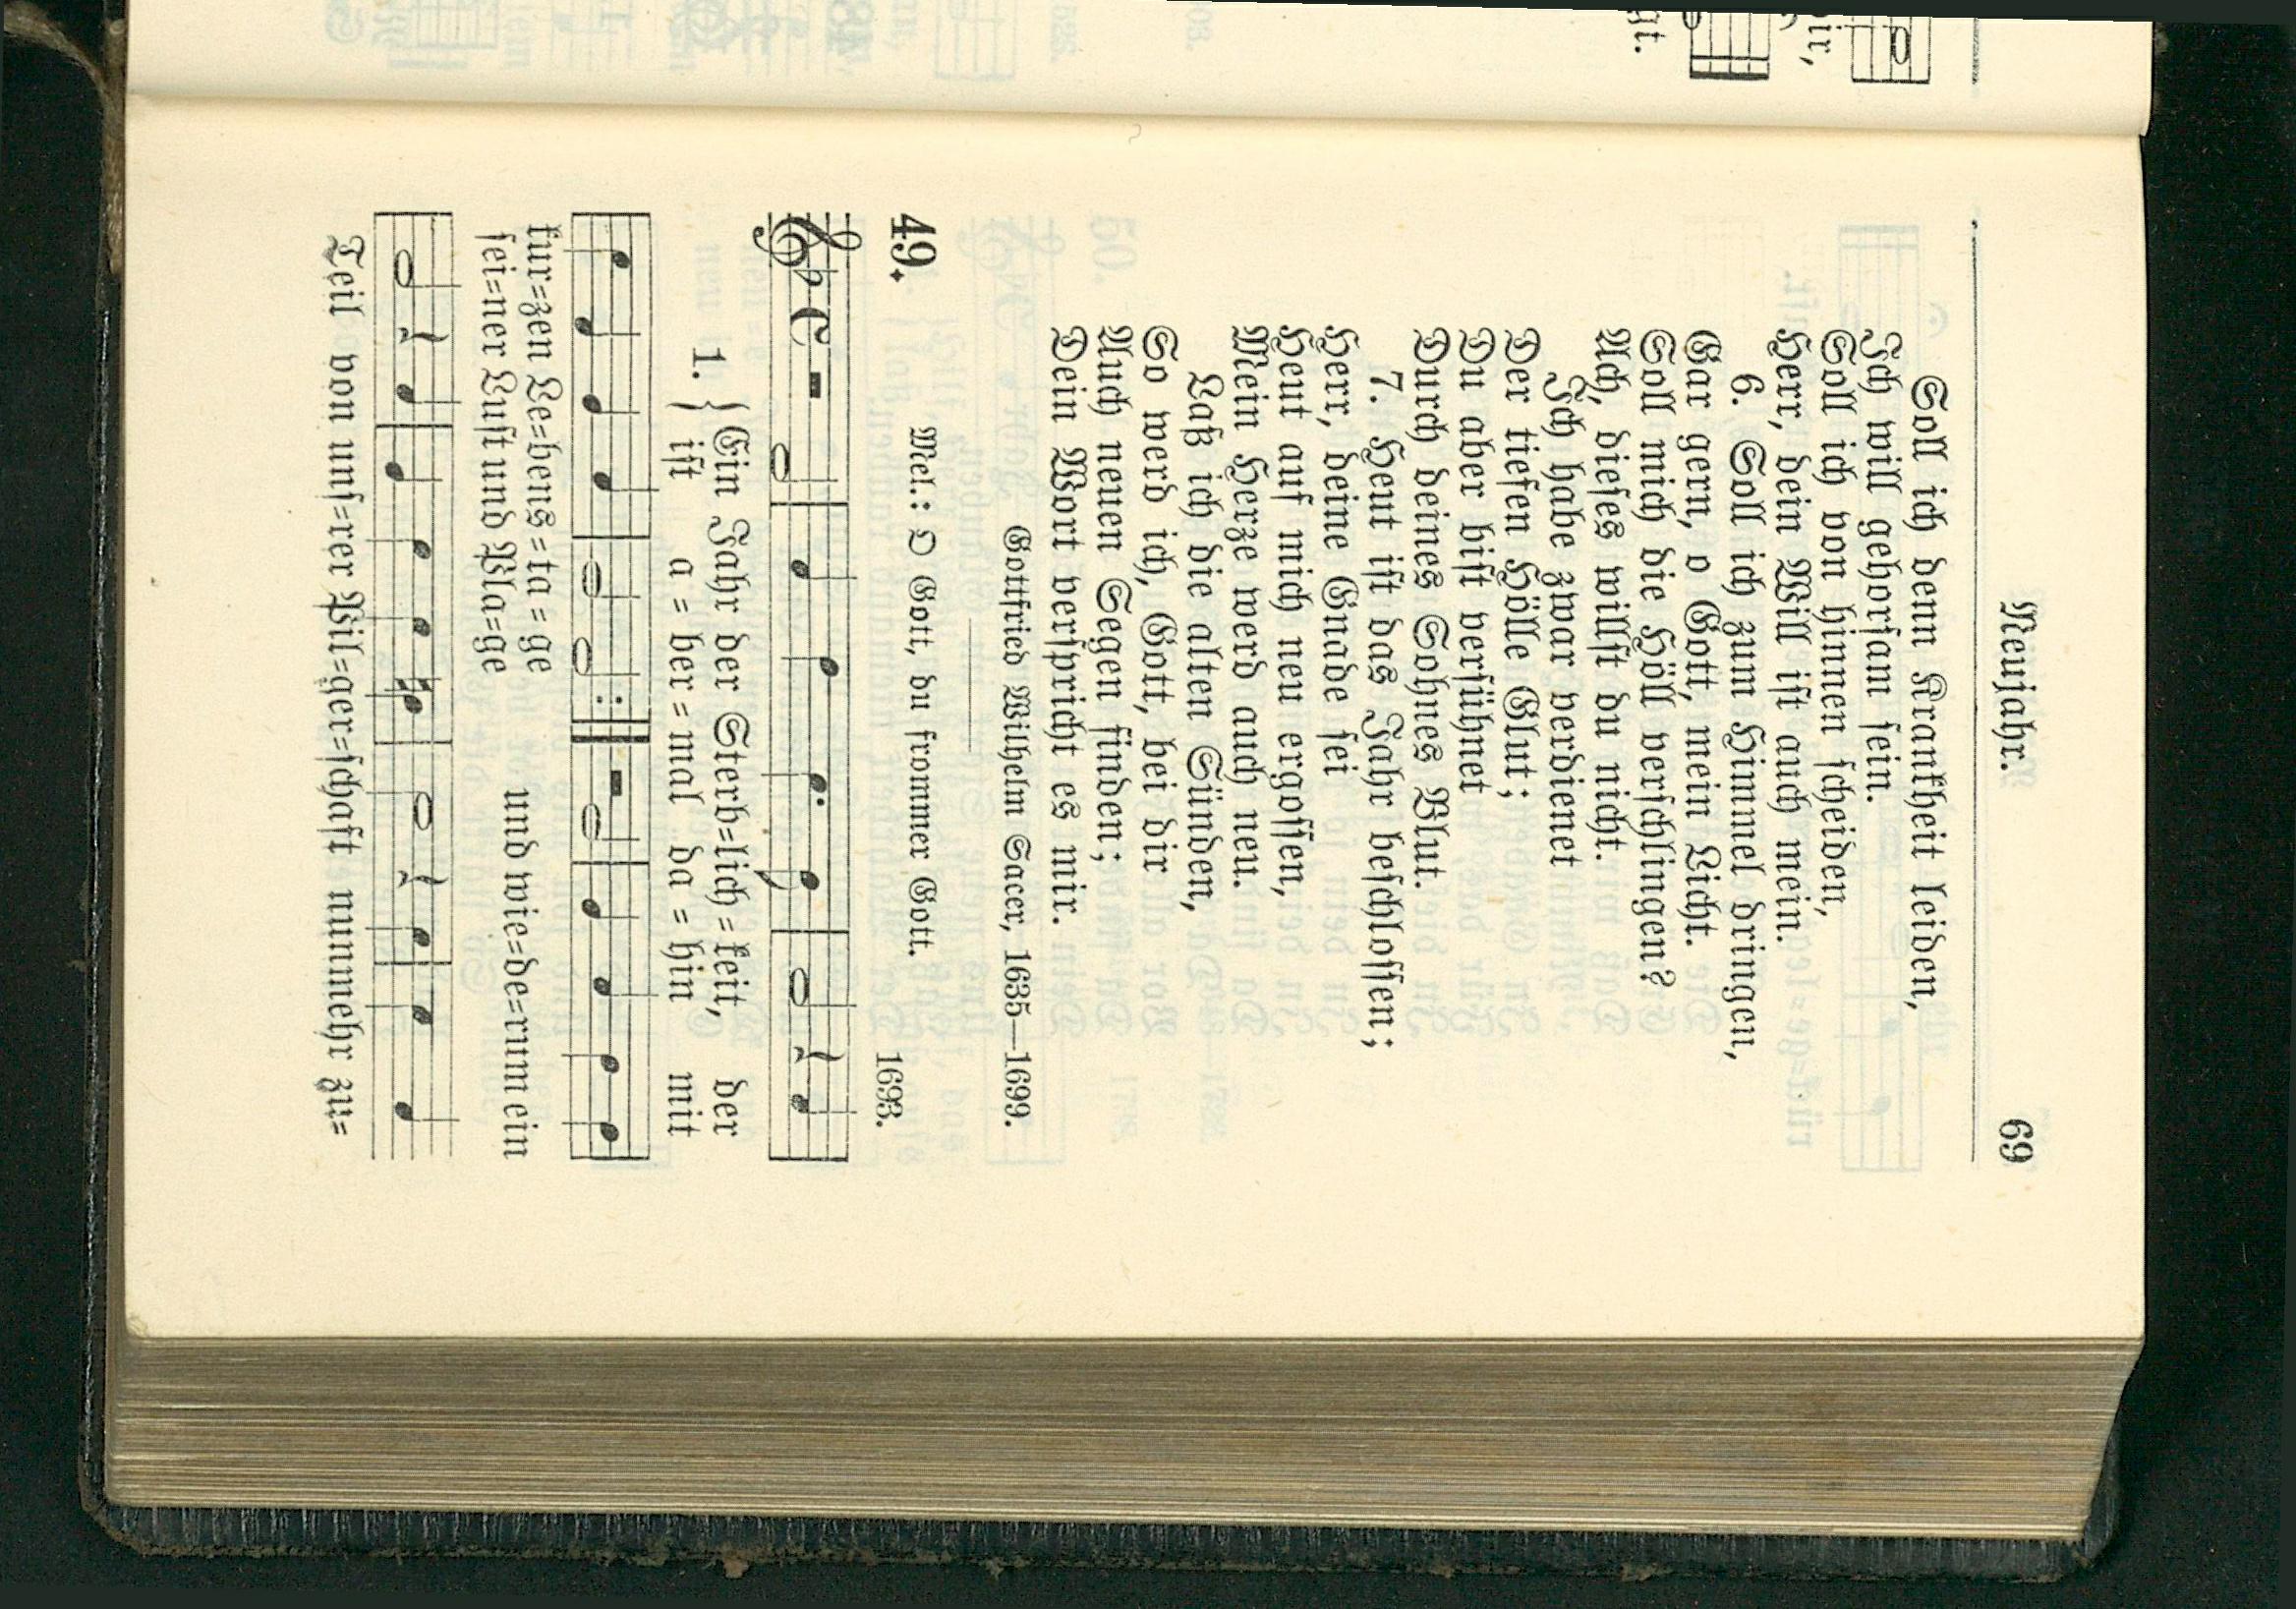 Neujahr. 69
Soll ich denn Krankheit leiden,
Ich will gehorsam sein.
Soll ich von hinnen scheiden,
Herr, dein Will ist auch mein.
6. Soll ich zum Himmel dringen,
Gar gern, o Gott, mein Licht.
Soll mich die Höll verschlingen?
Ach, dieses willst du nicht.
Ich habe zwar verdienet
Der tiefen Hölle Glut;
Du aber bist versühnet
Durch deines Sohnes Blut.
7. Heut ist das Jahr beschlossen;
Herr, deine Gnade sei
Heut auf mich neu ergossen,
Mein Herze werd auch neu.
Laß ich die alten Sünden,
So werd ich, Gott, bei dir
Auch neuen Segen finden;
Dein Wort verspricht es mir.
Gottfried Wilhelm Sacer, 1635—1699.
49. Mel.: O Gott, du frommer Gott.
1693.
1. { Ein Jahr der Sterb=lich=keit, der
ist a=ber=mal da=hin mit
kur=zen Le=bens=ta=ge
sei=ner Lust und Pla=ge
und wie=de=rum ein
Teil von uns=rer Pil=ger=schaft nunmehr zu=
gt.
ir,